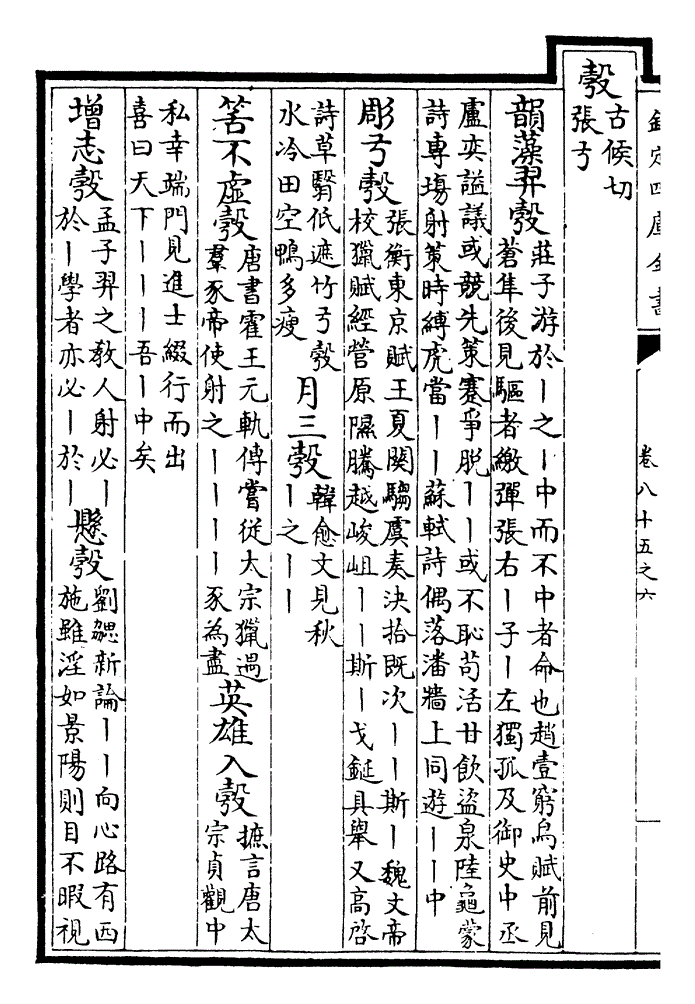 欽定四庫全書
卷八十五之六
彀
古候切
張弓
韻藻羿彀
莊子游於丨之丨中而不中者命也趙壹窮鳥賦前見
蒼隼後見驅者繳彈張右丨子丨左獨孤及御史中丞
盧奕謚議或競先策蹇爭脫丨丨或不恥苟活甘飲盜泉陸龜蒙
詩專場射策時縛虎當丨丨蘇軾詩偶落潘牆上同遊丨丨中
彫弓彀
張衡東京賦王夏闋騶虞奏決拾既次丨丨斯丨魏文帝
校獵賦經營原隰騰越峻岨丨丨斯丨戈鋋具舉又高啓
詩草翳低遮竹弓彀
水冷田空鴨多瘦
月三彀
韓愈文見秋
丨之丨丨
筈不虛彀
唐書霍王元軌傳嘗從太宗獵遇
羣豕帝使射之丨丨丨丨豕為盡
英雄入彀
摭言唐太
宗貞觀中
私幸端門見進士綴行而出
喜曰天下丨丨丨吾丨中矣
增志彀
孟子羿之教人射必丨
於丨學者亦必丨於丨
懸彀
劉勰新論丨丨向心路有西
施雖淫如景陽則目不暇視